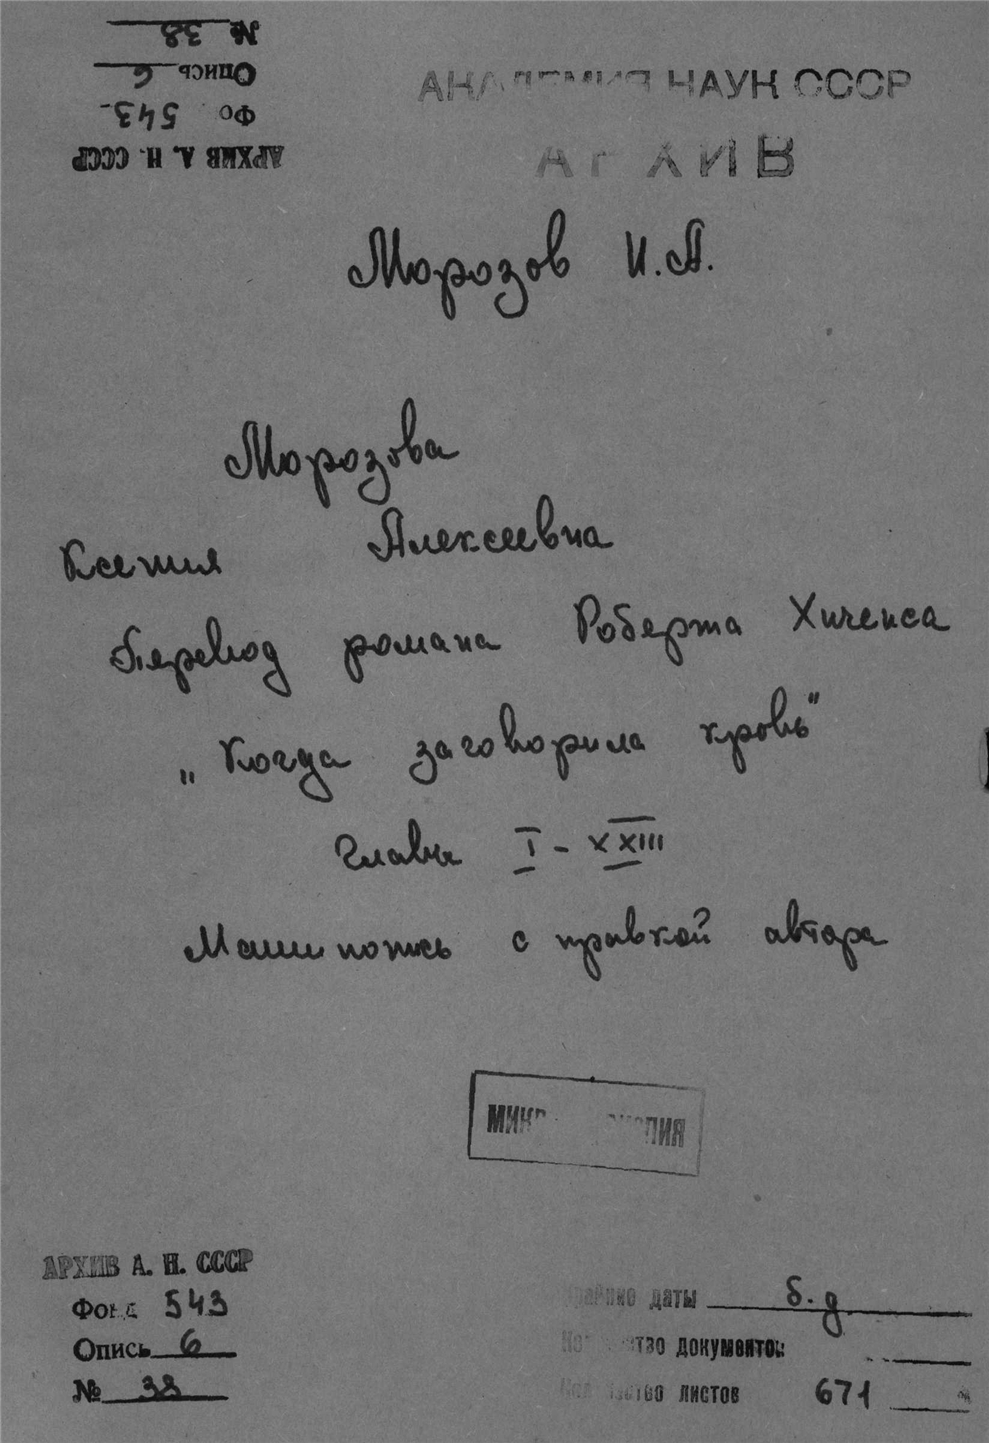 № 38
Опись 6
Фо 543
АРХИВ А. Н. СССР
АКАДЕМИЯ НАУК СССР
АРХИВ
Морозов И.А.
Морозова
Ксения Алексеевна
Перевод романа Роберта Хиченса
„Когда заговорила кровь"
Главы I - XXIII
Машинопись с правкой автора
МИКРОФОТОКОПИЯ
АРХИВ А. Н. СССР
Фонд 543
Опись 6
№ 38
Крайние даты б.д
Количество документов
Количество листов 671